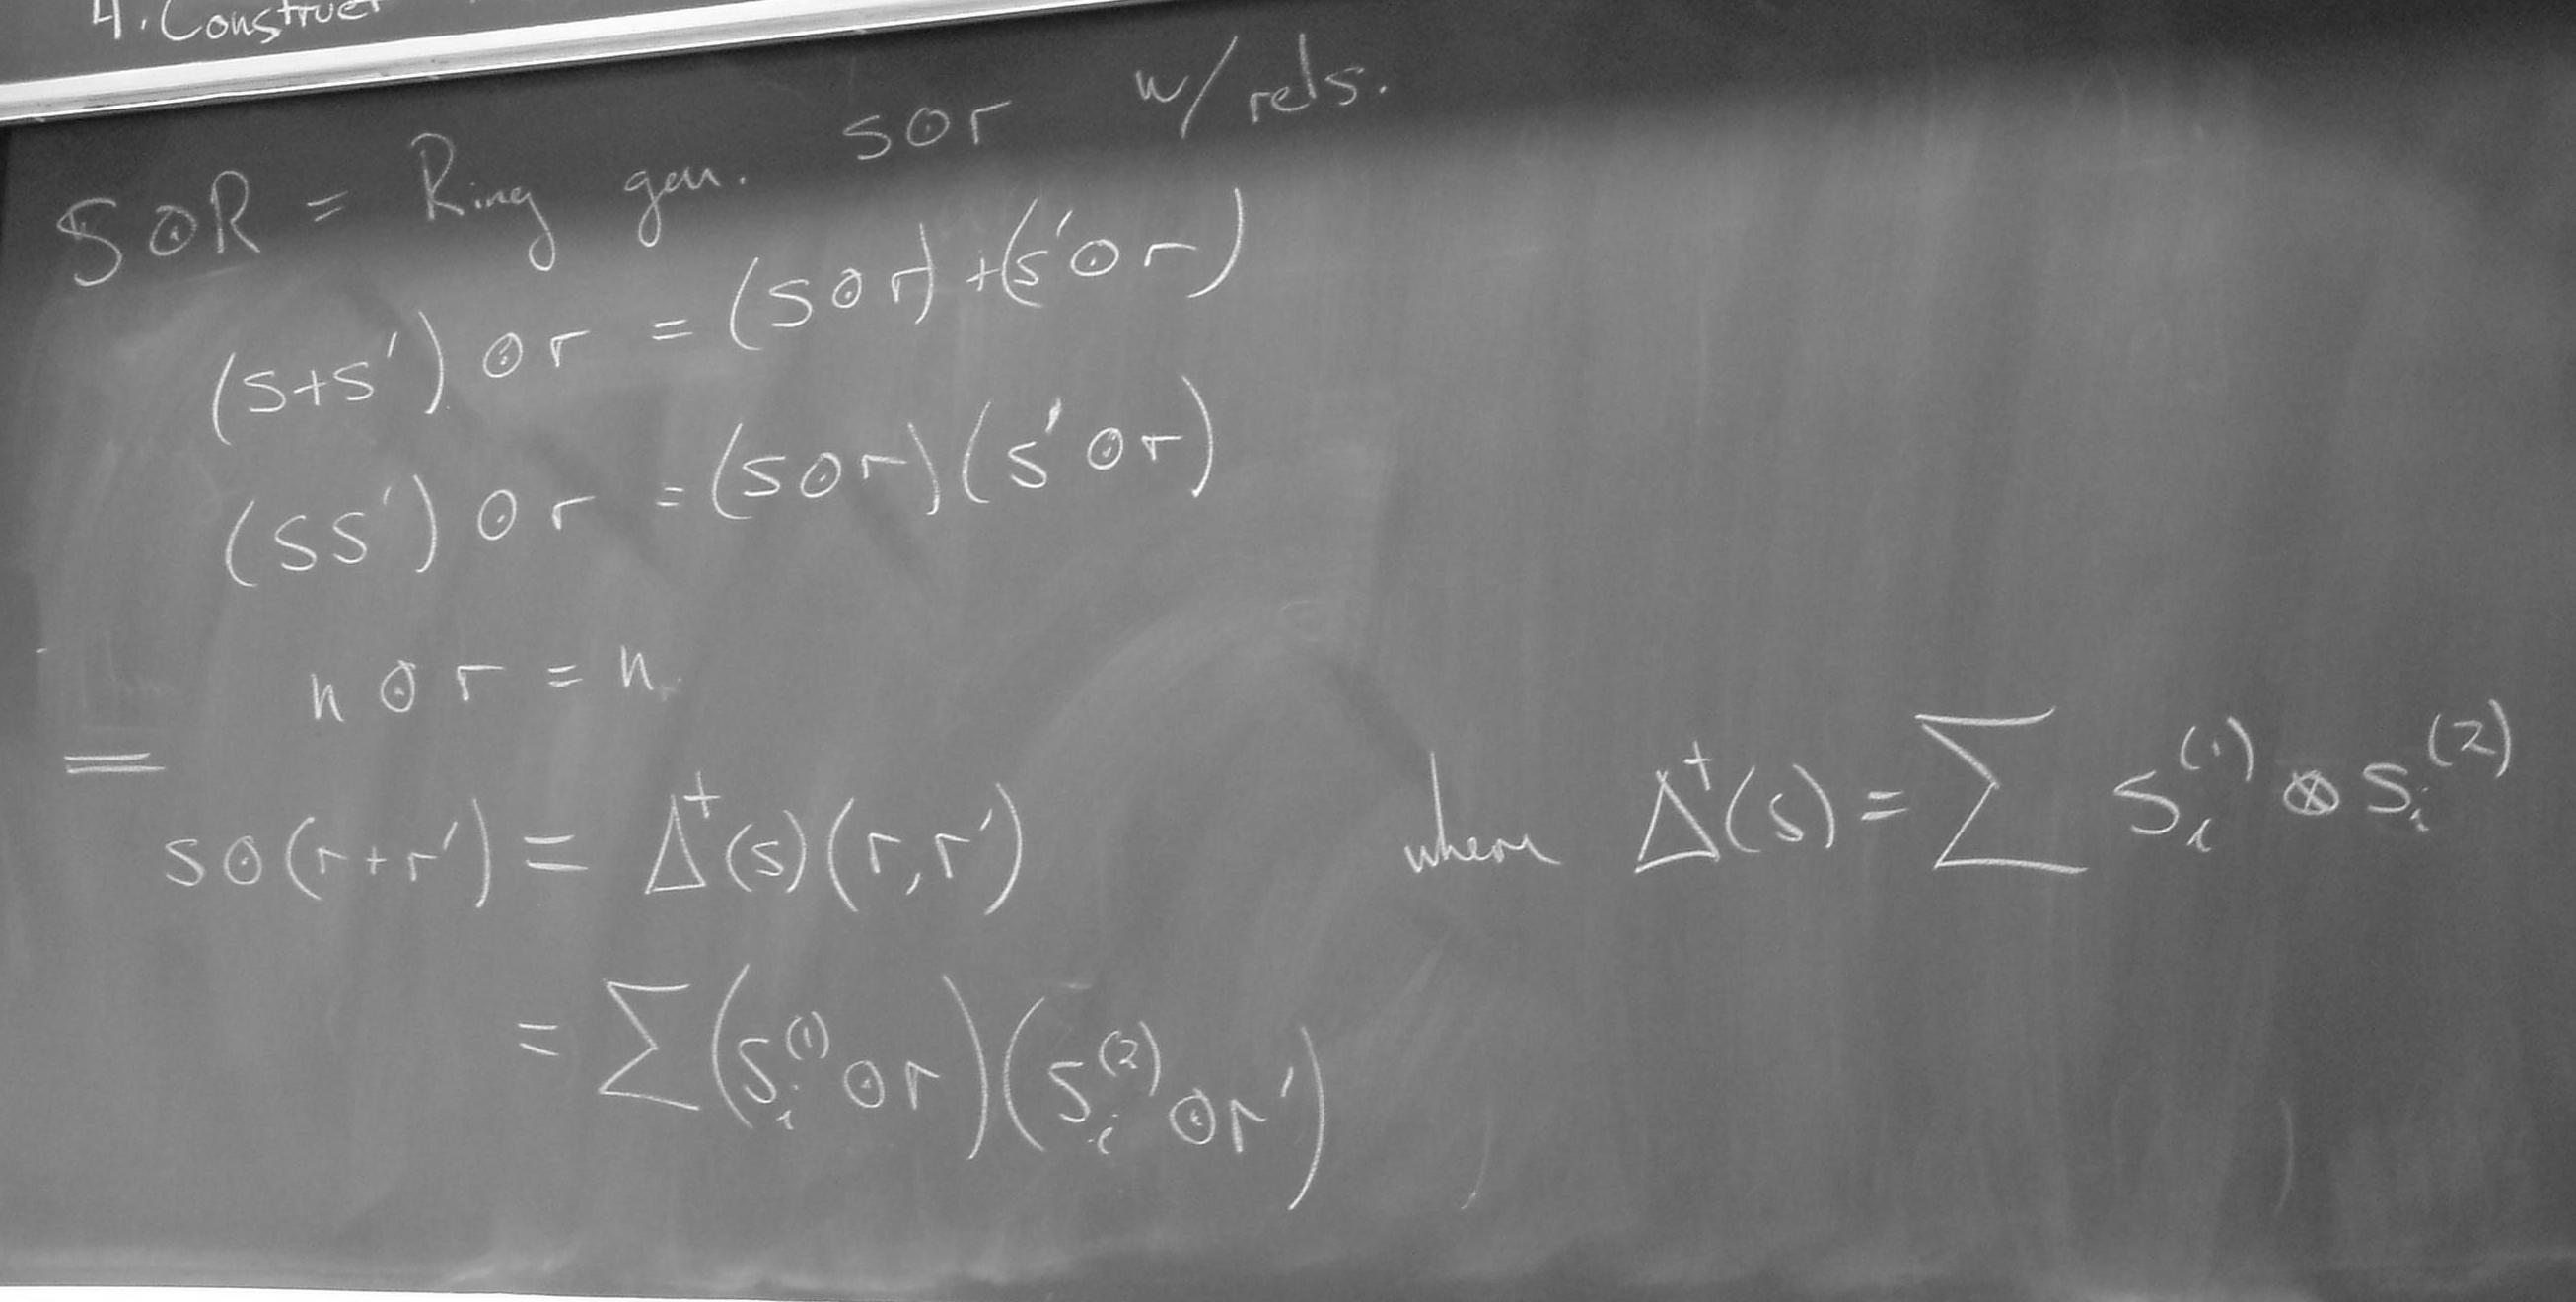 4. Construct
S⊙R = Ring gen. s⊙r w/ rels.
(s+s') ⊙ r = (s⊙r)+(s'⊙r)
(ss') ⊙ r = (s⊙r)(s'⊙r)
n ⊙ r = n.
s⊙(r+r') = Δ⁺(s)(r,r') where Δ⁺(s) = ∑ sᵢ⁽¹⁾ ⊗ sᵢ⁽²⁾
= ∑(sᵢ⁽¹⁾⊙r)(sᵢ⁽²⁾⊙r')